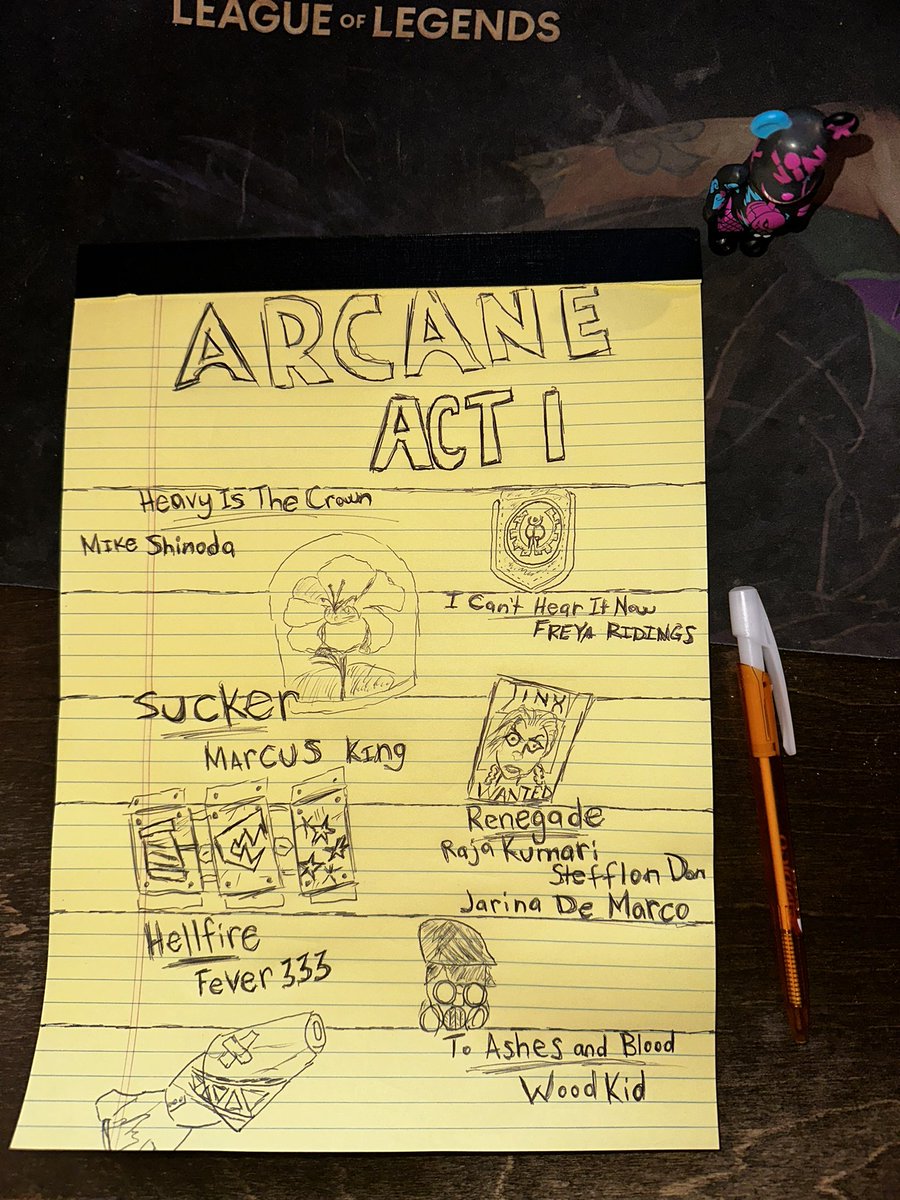 LEAGUE OF LEGENDS
ARCANE
ACT 1
Heavy Is The Crown
Mike Shinoda
I Can't Hear It Now
FREYA RIDINGS
Sucker
Marcus King
JINX
WANTED
Renegade
Raja Kumari
Stefflon Don
Jarina De Marco
Hellfire
Fever 333
To Ashes and Blood
WoodKid